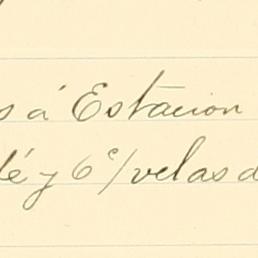 s á Estacion
lé y 6 c/ velas d